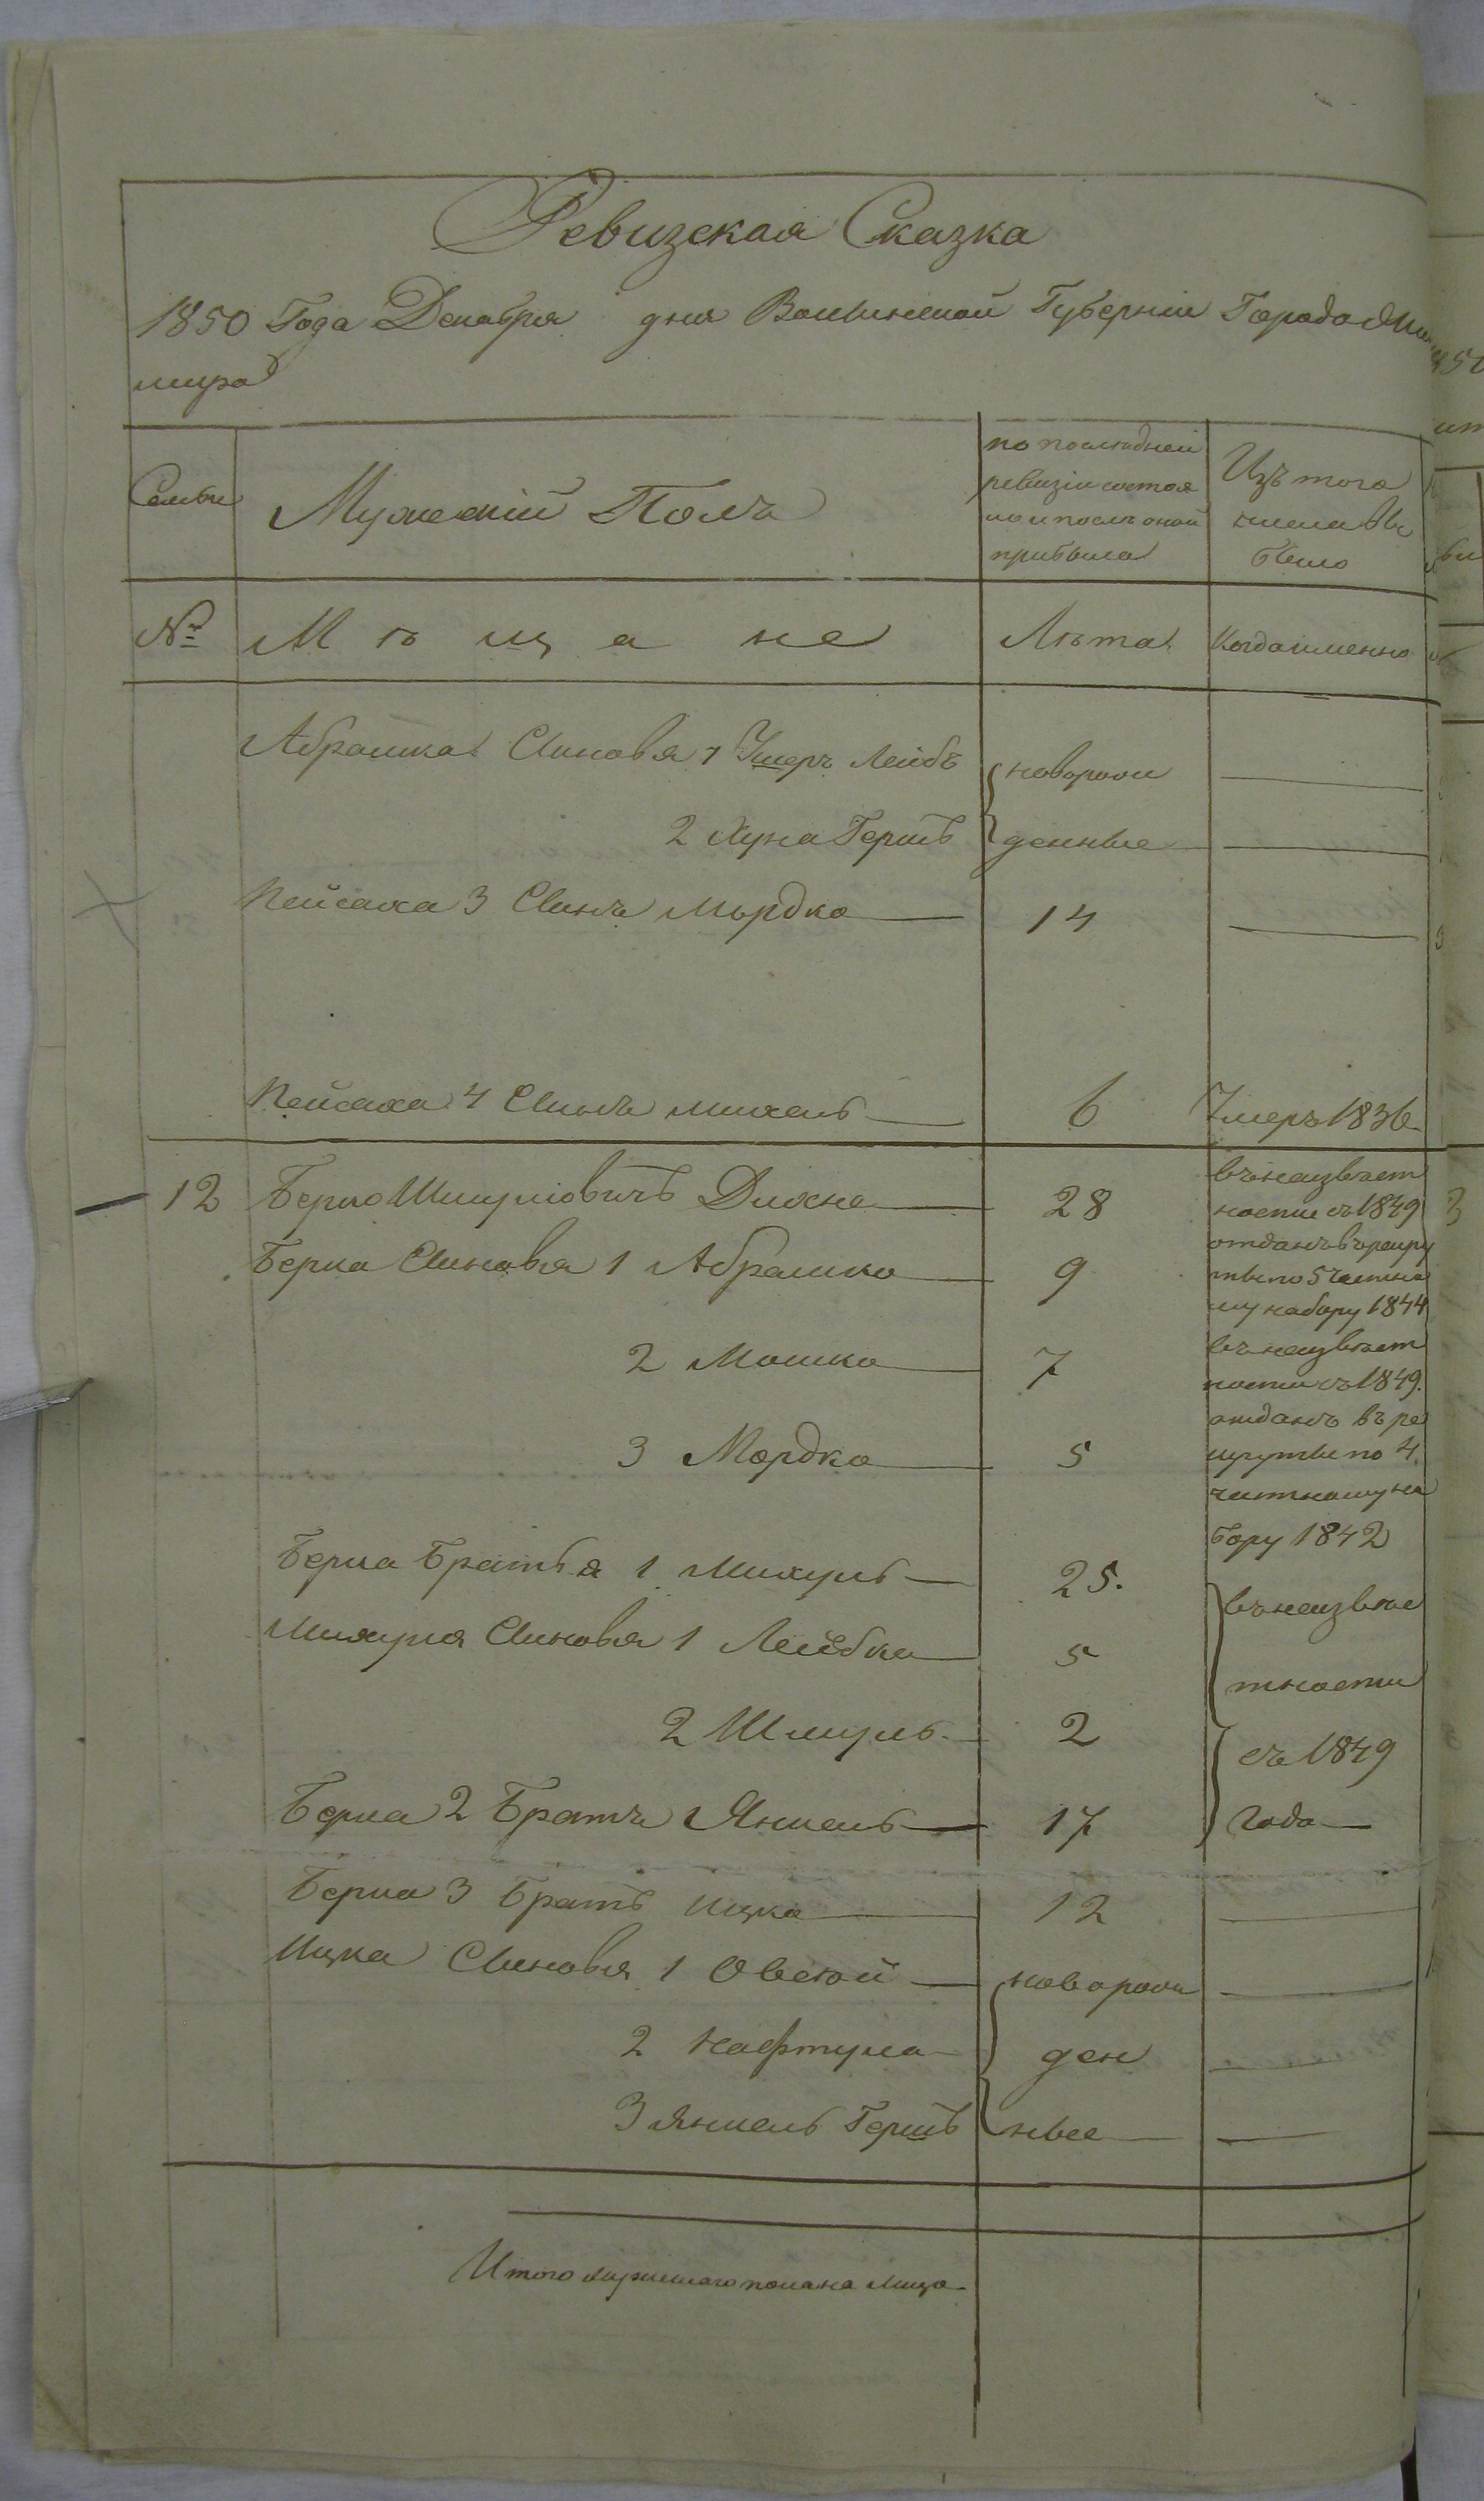 Ревизская Сказка
1850 Года Декабря дня Волынской Губернии Города Жито
мира
Семьи
Мужескій Полъ
по последней
ревизіи состоя
ло и послѣ оной
прибыло
Изъ того
числа вы
было
№
Мѣщане
Лѣта
Когда именно
Абрамка Сыновья 1 Умеръ Лейбъ
новорож
2 Хуна Гершъ
денные
Пейсаха 3 Сынъ Мордко
14
Пейсаха 4 Сынъ Михель
6
Умеръ 1836
12 Берко Шмулiовичъ
28
въ неизвѣст
ности съ 1849
Берка Сыновья 1 Абрамко
9
отданъ въ рекру
ты по 5 частно
му набору 1844
2 Мошко
7
въ неизвѣст
ности съ 1849.
3 Мордко
5
отданъ въ ре
круты по 4.
частному на
бору 1842
Берка Братья 1 Михуль
25.
въ неизвѣс
Михуля Сыновья 1 Лейбка
5
тности
2 Шмуль
2
съ 1849
Берка 2 Братъ Янкель
17
Года
Берка 3 Братъ Ицко
12
Ицка Сыновья 1 Овсей
новорож
2 Нафтула
ден
3 Янкель Гершъ
ные
Итого мужескаго пола на лицо